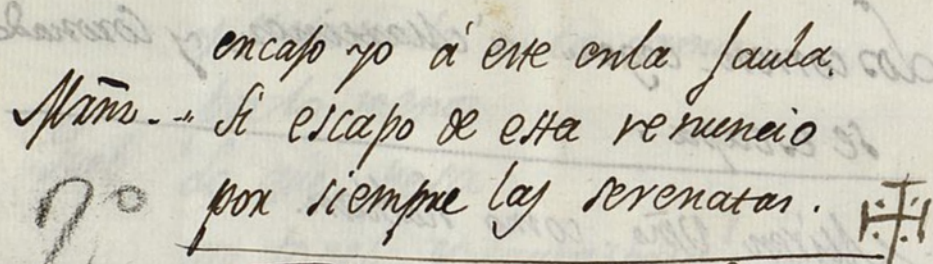 encaso yo á este enla Jaula.
Si escapo de esta renuncio
por siempre las serenatas.